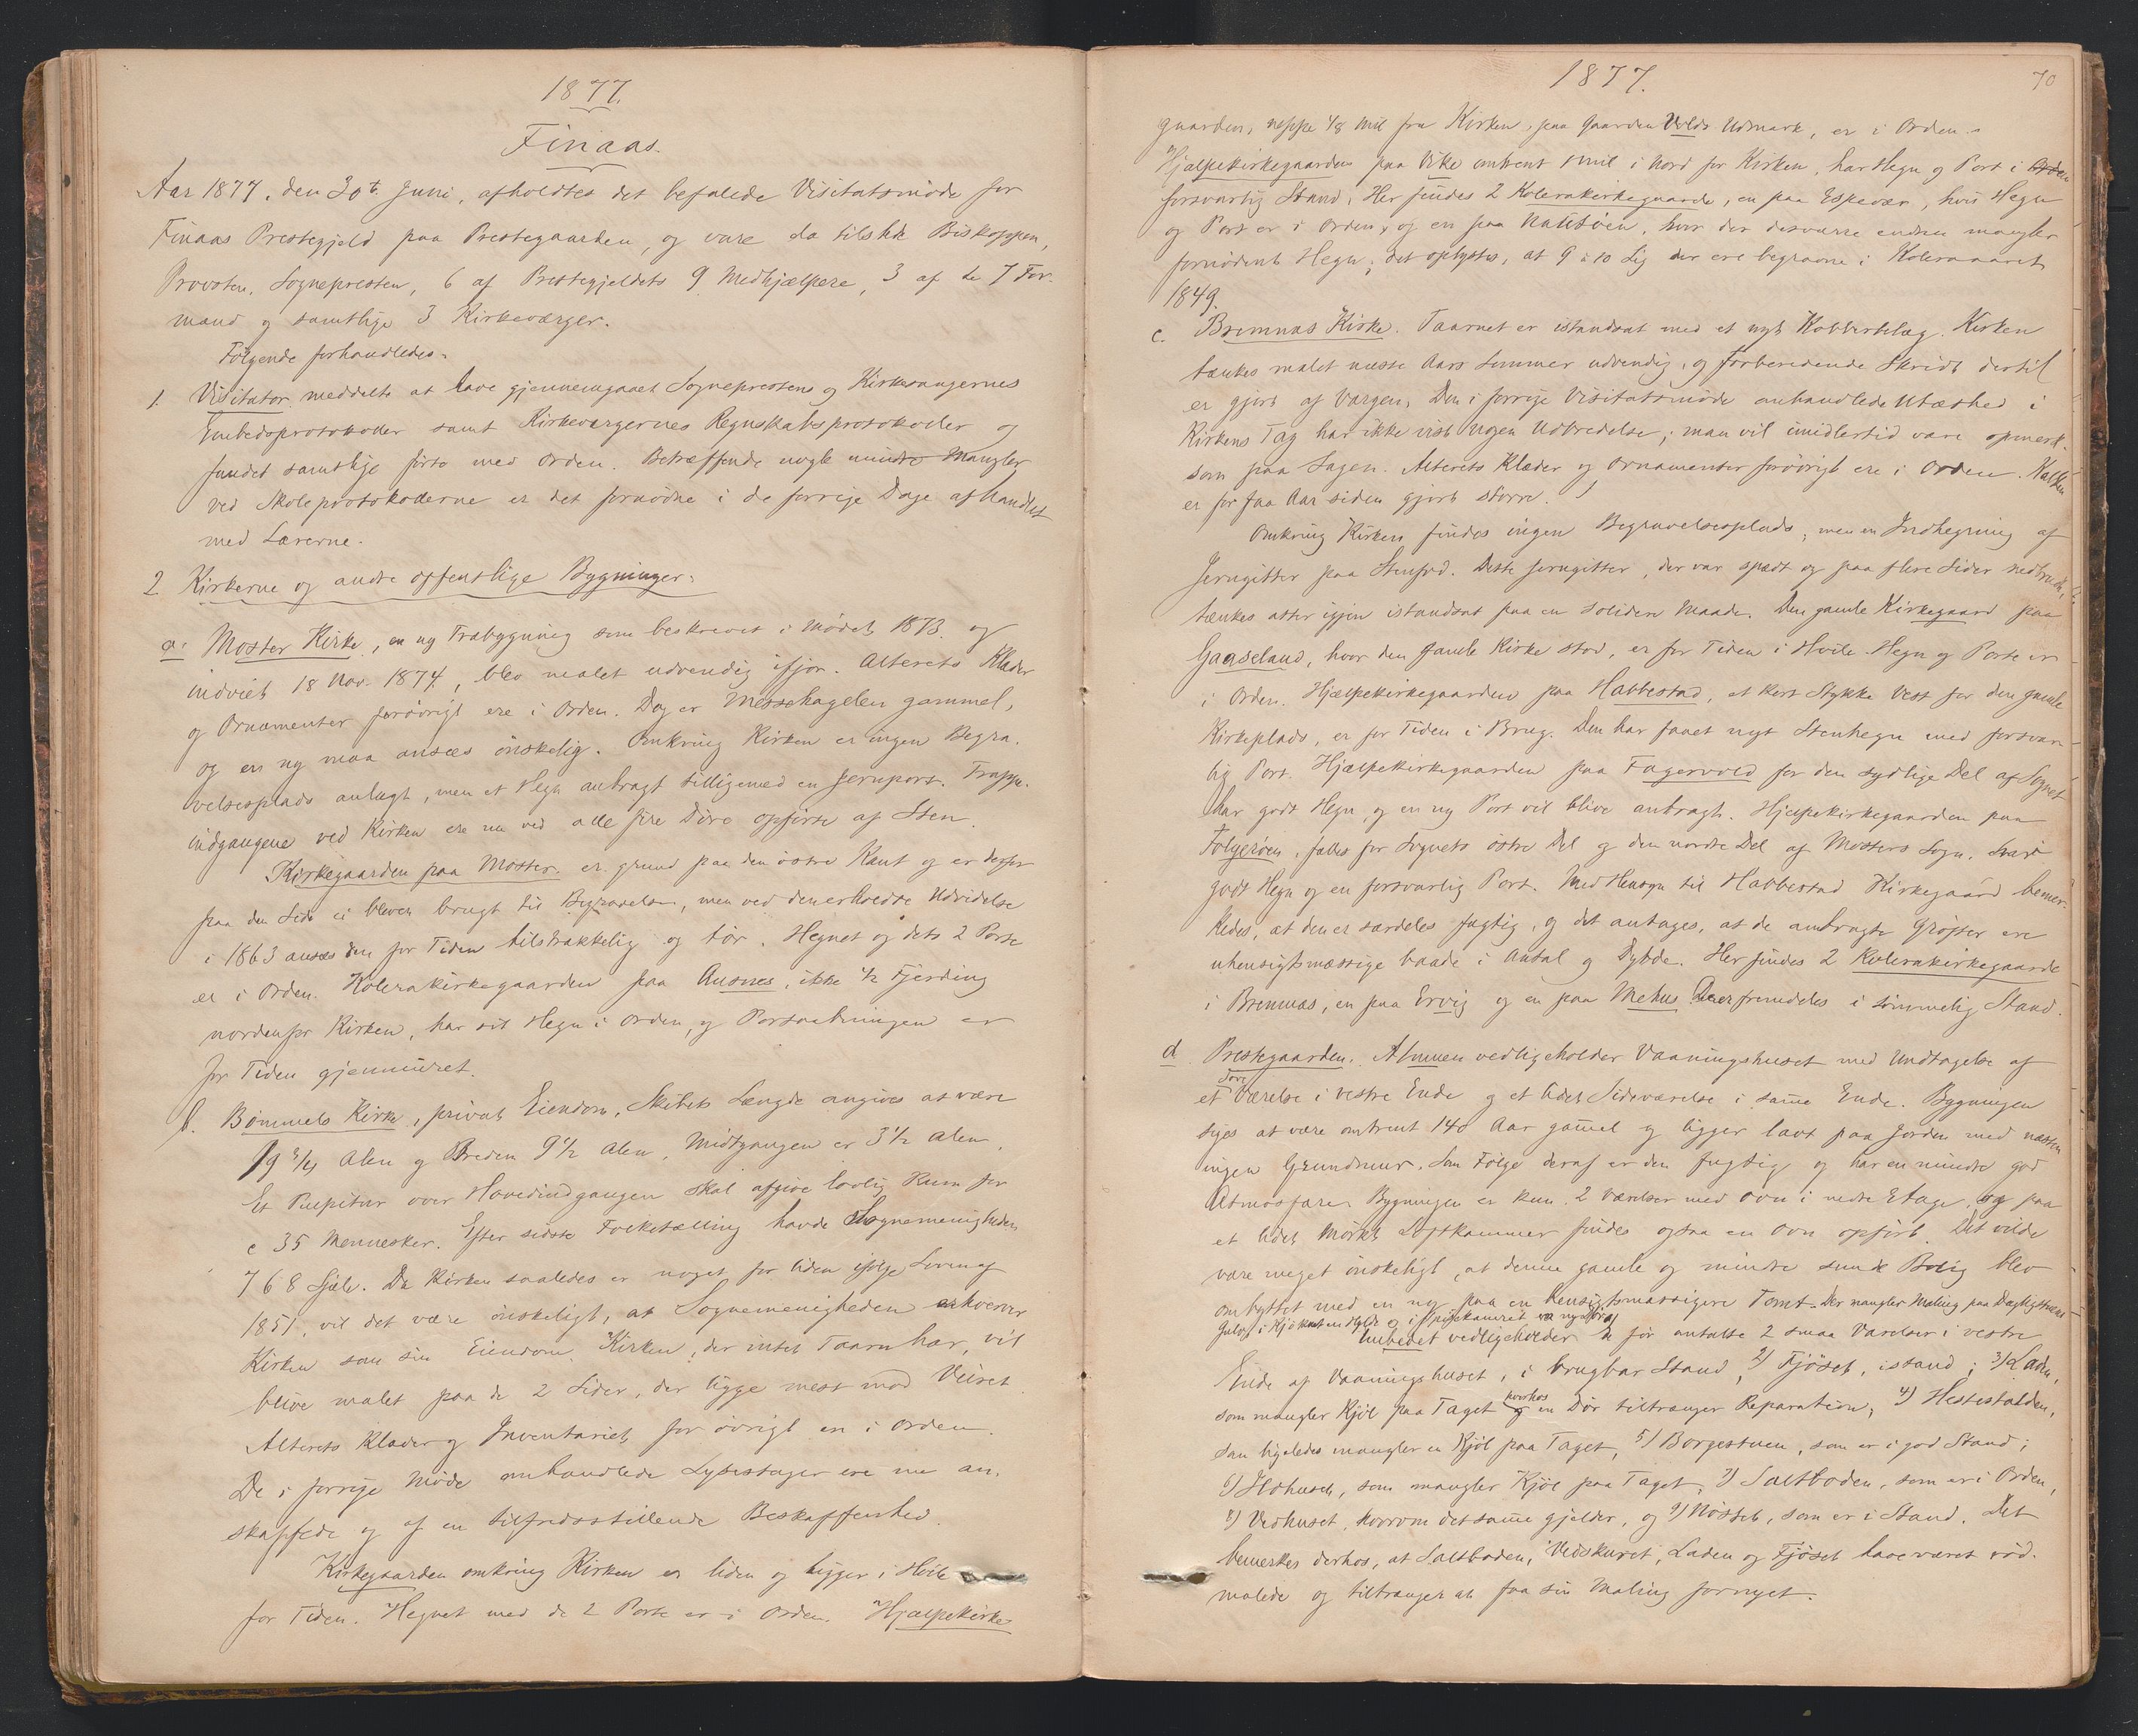 1877.
Finaas.
Aar 1877, den 30te Juni, afholdtes det befalede Visitatsmöde for
Finaas Prestegjeld paa Prestegaarden, og vare da tilstede Biskoppen,
Provsten, Sognepresten, 6 af Prestegjeldets 9 Medhjælpere, 3 af de 7 For-
mænd og samtlige 3 Kirkeværger.
Følgende forhandledes:
1. Visitator meddelte at have gjennemgaaet Sogneprestens og Kirkesangernes
Embedsprotokoller samt Kirkeværgernes Regnskabsprotokoller og
fundet samtlige förte med Orden. Betræffende nogle mindre Mangler
ved Skoleprotokollerne er det fornödne i de forrige Dage afhandlet
med Lærerne.
2. Kirkerne og andre offentlige Bygninger:
a. Moster Kirke, en ny Træbygning som beskrevet i Mödet 1873 og
indviet 18 Nov. 1874, blev malet udvendig ifjor. Alterets Klæder
og Ornamenter forövrigt ere i Orden. Dog er Messehagelen gammel,
og en ny maa ansees önskelig. Omkring Kirken er ingen Begra-
velsesplads anlagt, men et Hegn anbragt tilligemed en Jernport. Trappe-
indgangene ved Kirken ere nu ved alle fire Döre opförte af Sten.
Kirkegaarden paa Moster er grund paa den östre Kant og er derfor
paa den Side ei bleven brugt til Begravelse, men ved den erholdte Udvidelse
i 1863 ansees den for Tiden tilstrækkelig og tör. Hegnet og dets 2 Porte
er i Orden. Kolerakirkegaarden paa Ausnes, ikke 1/2 Fjerding
nordenfor Kirken, har sit Hegn i Orden, og Portaabningen er
for Tiden gjenmuret.
b. Bömmels Kirke, privat Eiendom. Skibets Længde angives at være
19 3/4 Alen og Breden 9 1/2 Alen, Midtgangen er 3 1/2 Alen.
Et Pulpitur over Hovedindgangen skal afgive lovlig Rum for
c 35 Mennesker. Efter sidste Folketælling havde Sognemenigheden
768 Sjæle. Da Kirken saaledes er noget for liden ifølge Loven af
1851, vil det være önskeligt, at Sognemenigheden erhverver
Kirken som sin Eiendom. Kirken, der intet Taarn har, vil
blive malet paa de 2 Sider, der ligge mest mod Veiret.
Alterets Klæder og Inventariet for övrigt er i Orden.
De i forrige Möde omhandlede Lysestager ere nu an-
skaffede og af en tilfredsstillende Beskaffenhed.
Kirkegaarden omkring Kirken er liden og ligger i Hvile
for Tiden. Hegnet med de 2 Porte er i Orden. Hjælpekirke-
1877.
70
gaarden, neppe 1/8 Mil fra Kirken, paa Gaarden Volds Udmark, er i Orden.
Hjælpekirkegaarden paa Vike omtrent 1 Mil i Nord for Kirken, har Hegn og Port i Orden
forsvarlig Stand. Her findes 2 Kolerakirkegaarde, en paa Espevær, hvis Hegn
og Port er i Orden, og en paa, hvor der desværre endnu mangler
fornödent Hegn; det oplystes, at 9 à 10 Lig der ere begravne i Koleraaaret
1849.
c. Bremnæs Kirke. Taarnet er istandsat med et nyt Kobberbelæg. Kirken
tænkes malet næste Aars Sommer udvendig, og forberedende Skridt dertil
er gjort af Værgen. Den i forrige Visitatsmöde omhandlede Utæthed i
Kirkens Tag har ikke vist nogen Udbredelse; man vil imidlertid være opmærk-
som paa Sagen. Alterets Klæder og Ornamenter forövrigt ere i Orden. Kalken
er for faa Aar siden gjort större.
Omkring Kirken findes ingen Begravelsesplads, men en Indhegning af
Jerngitter paa Stenfod. Dette Jerngitter, der var spædt og paa flere Sider nedbrudt,
tænkes atter igjen istandsat paa en solidere Maade. Den gamle Kirkegaard paa
Gaaseland, hvor den gamle Kirke stod, er for Tiden i Hvile. Hegn og Porte er
i Orden. Hjælpekirkegaarden paa Habbestad, et kort Stykke Vest for den gamle
Kirkeplads, er for Tiden i Brug. Den har faaet nyt Stenhegn med forsvar-
lig Port. Hjælpekirkegaarden paa Fagervold for den sydlige Del af Sognet
har godt Hegn, og en ny Port vil blive anbragt. Hjælpekirkegaarden paa
Folgeröen, fælles for Sognets östre Del og den nordre Del af Mosters Sogn, har
godt Hegn og en forsvarlig Port. Med Hensyn til Habbestad Kirkegaard bemær-
kedes, at den er særdeles fugtig, og det antages, at de anbragte Gröfter ere
uhensigtsmæssige baade i Antal og Dybde. Her findes 2 Kolerakirkegaarde
i Bremnæs, en paa Ervig og en paa Mehus. De er fremdeles i sömmelig Stand.
d. Prestegaarden. Almuen vedligeholder Vaaningshuset med Undtagelse af
et större Værelse i vestre Ende og et lidet Sideværelse i samme Ende. Bygningen
siges at være omtrent 140 Aar gammel og ligger lavt paa Jorden med næsten
ingen Grundmur. Som Følge deraf er den fugtig og har en mindre god
Atmosfære. Bygningen er kun 2 Værelser med Ovn i nedre Etage, og paa
et lidet mörkt Loftkammer findes ogsaa en Ovn opfört. Det vilde
være meget önskeligt, at denne gamle og mindre sunde Bolig blev
ombyttet med en ny paa en hensigtsmæssigere Tomt. Der mangler Maling paa Dagligstuens
Gulv, i Kjökkenet en Hylde og i Spisekammeret
Embedet vedligeholder de för omtalte 2 smaa Værelser i vestre
Ende af Vaaningshuset, i brugbar Stand, 2) Fjöset, istand; 3) Laden,
som mangler Kjöl paa Taget hvorhos en Dör tiltrænger Reparation, 4) Hestestalden,
som ligeledes mangler en Kjöl paa Taget, 5) Borgestuen, som er i god Stand;
6) Ildhuset, som mangler Kjöl paa Taget, 7) Saltboden, som er i Orden,
8) Vedhuset, hvorom det samme gjelder, og 9) Nöstet, som er i Stand. Det
bemærkes derhos, at Saltboden, Vedskuret, Laden og Fjöset have været röd-
malede og tiltrænger at faa sin Maling fornyet.